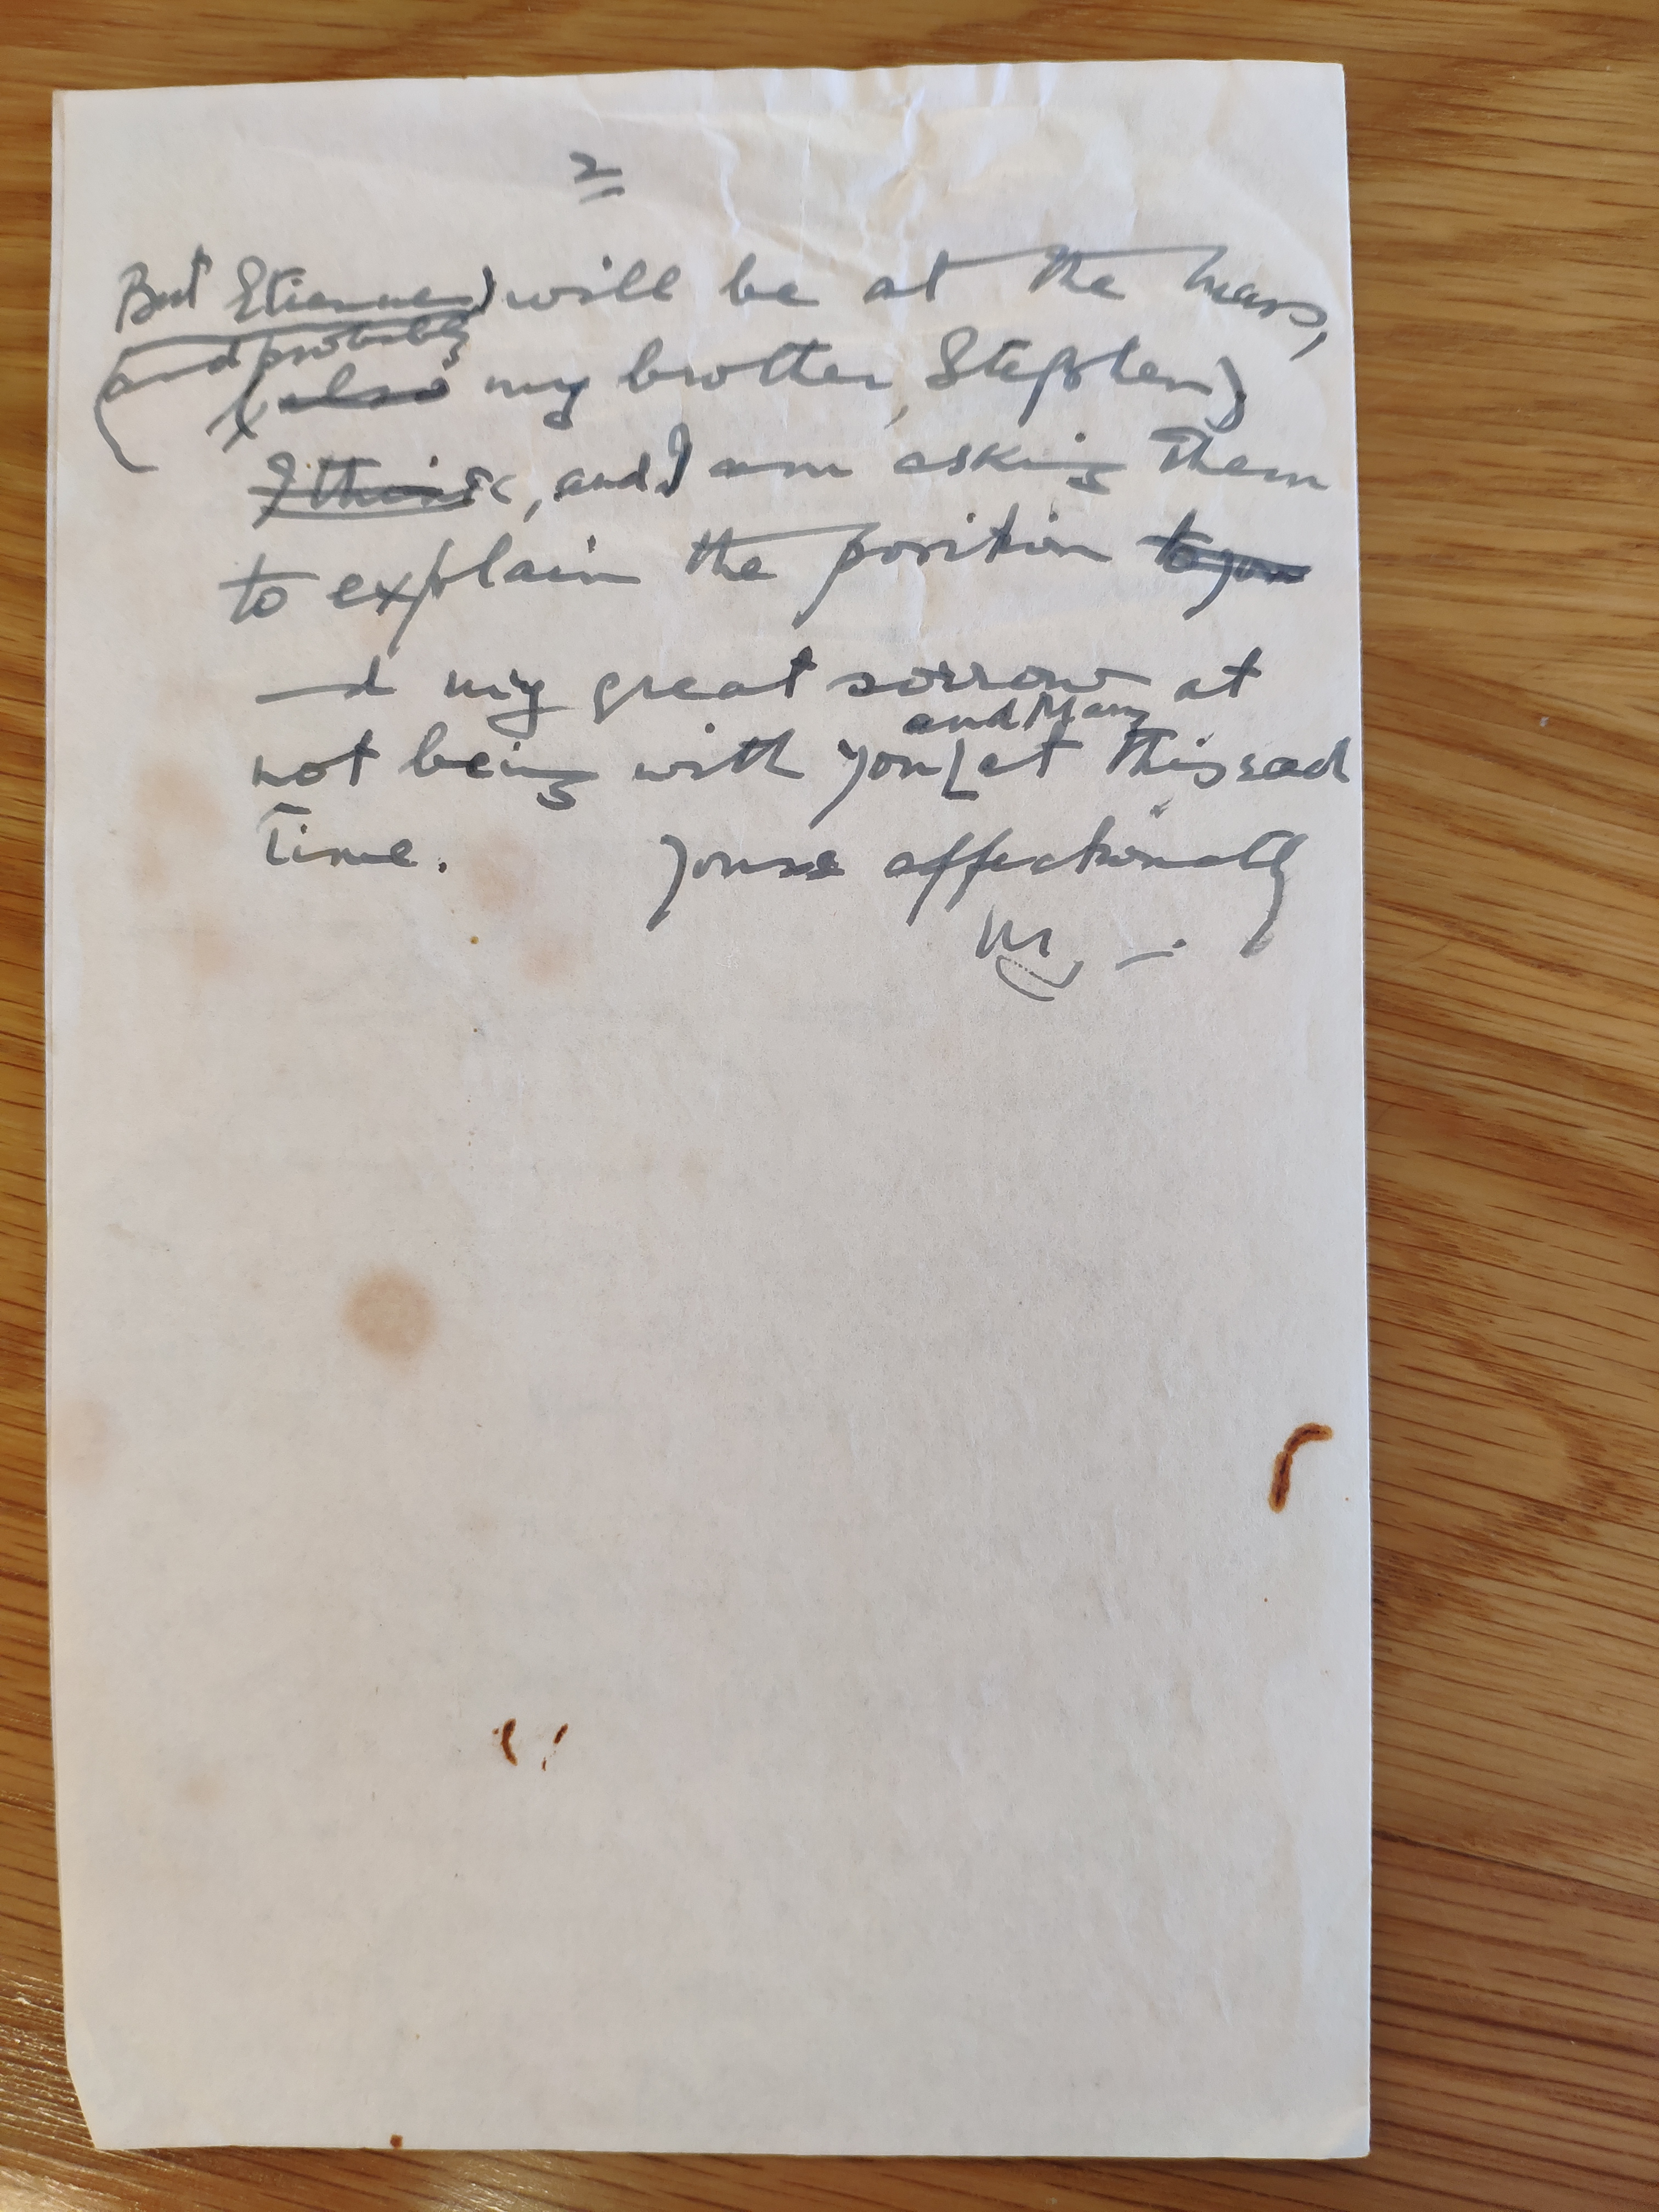 2
But Etienne) will be at the mass,
(and probably
(also my brother, Stephen)
I think, and I am asking them
to explain the position to you
and my great sorrow at
and Mary
not being with you at this sad
time. Yours affectionately
M